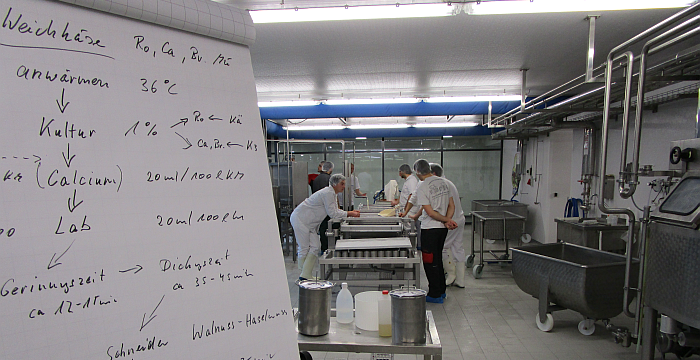 Weichkäse Ro, Ca, Br. Mü
anwärmen 36°C
Kultur 1% Ro Kä
Ca, Br K3
(Calcium) 20ml/100l Km
Lab 20ml/100l Km
Gerinnungszeit Dickungszeit
ca 12-15min ca 35-45min
Schneiden Walnuss-Haselnuss